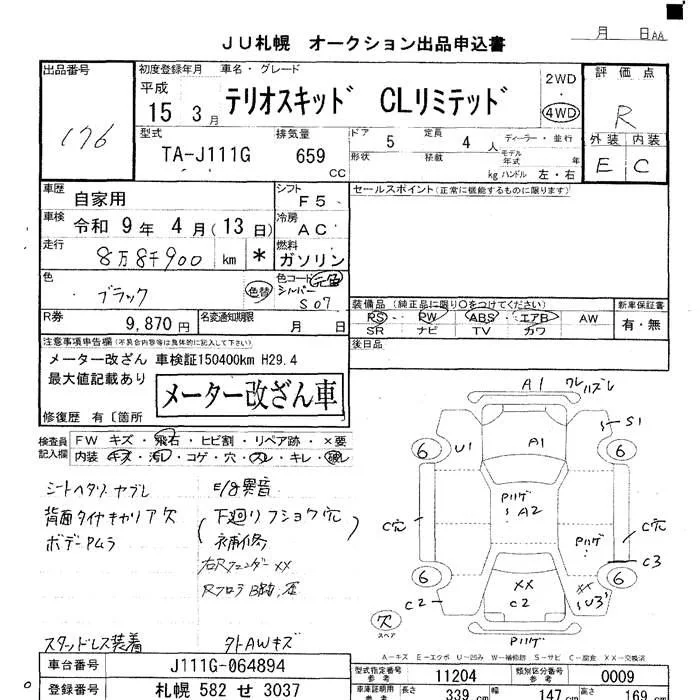 月 日AA
JU札幌 オークション出品申込書
出品番号
176
初度登録年月
平成
15 3月
車名・グレード
テリオスキッド CLリミテッド
2WD
・
4WD
評価点
R
外装 内装
E C
型式
TA-J111G
排気量
659
CC
ドア 5 定員 4 人 ディーラー・並行
形状 積載 kg モデル年式 年
ハンドル 左・右
車歴
自家用
シフト
F5
セールスポイント(正常に機能するものに限ります)
車検
令和 9年 4月(13日)
冷房
AC
走行
8万8千900 km *
燃料
ガソリン
色
ブラック
色替
色コード 元色
シルバー
S07
R券
9,870円
名変通知期限
月 日
装備品(純正品に限り○をつけてください)
PS・PW・ABS・エアB・AW
SR ナビ TV カワ
新車保証書
有・無
後日品
注意事項申告欄(不具合内容等は具体的に記入して下さい)
メーター改ざん 車検証150400km H29.4
最大値記載あり
メーター改ざん車
修復歴 有〔箇所
検査員
記入欄
FW キズ・飛石・ヒビ割・リペア跡・×要
内装・キズ・汚レ・コゲ・穴・スレ・キレ・破レ
シートヘタリ・ヤブレ
背面タイヤキャリア欠
ボデーPムラ
E/g異音
(下廻りフショウ穴
補修)
右Rフェンダー××
Rフロア
スタッドレス装着
タトAWキズ
A1
S1
6
U1
A1
6
Pハゲ
A2
C穴
Pハゲ
C穴
C3
6
××
C2
××
U3
6
C2
欠
スペア
Pハゲ
A-キズ E-エクボ U-凹み W-補修跡 S-サビ C-腐食 XX-交換済
車台番号
J111G-064894
登録番号
札幌 582 せ 3037
型式指定番号
参考
11204
類別区分番号
参考
0009
車庫証明用
参考
長さ
339 cm
幅
147 cm
高さ
169 cm